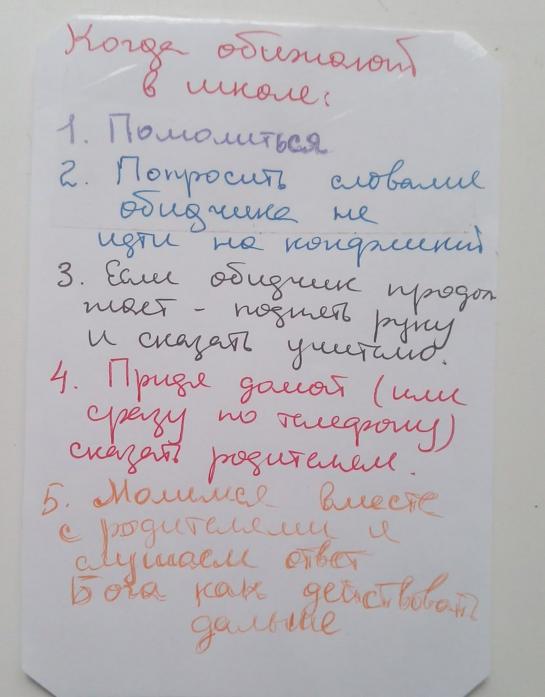 Когда обижают
в школе:
1. Помолиться
2. Попросить словами
обидчика не
идти на конфликт
3. Если обидчик продол
жает - поднять руку
и сказать учителю.
4. Придя домой (или
сразу по телефону)
сказать родителям.
5. Молимся вместе
с родителями и
слушаем ответ
Бога как действовать
дальше